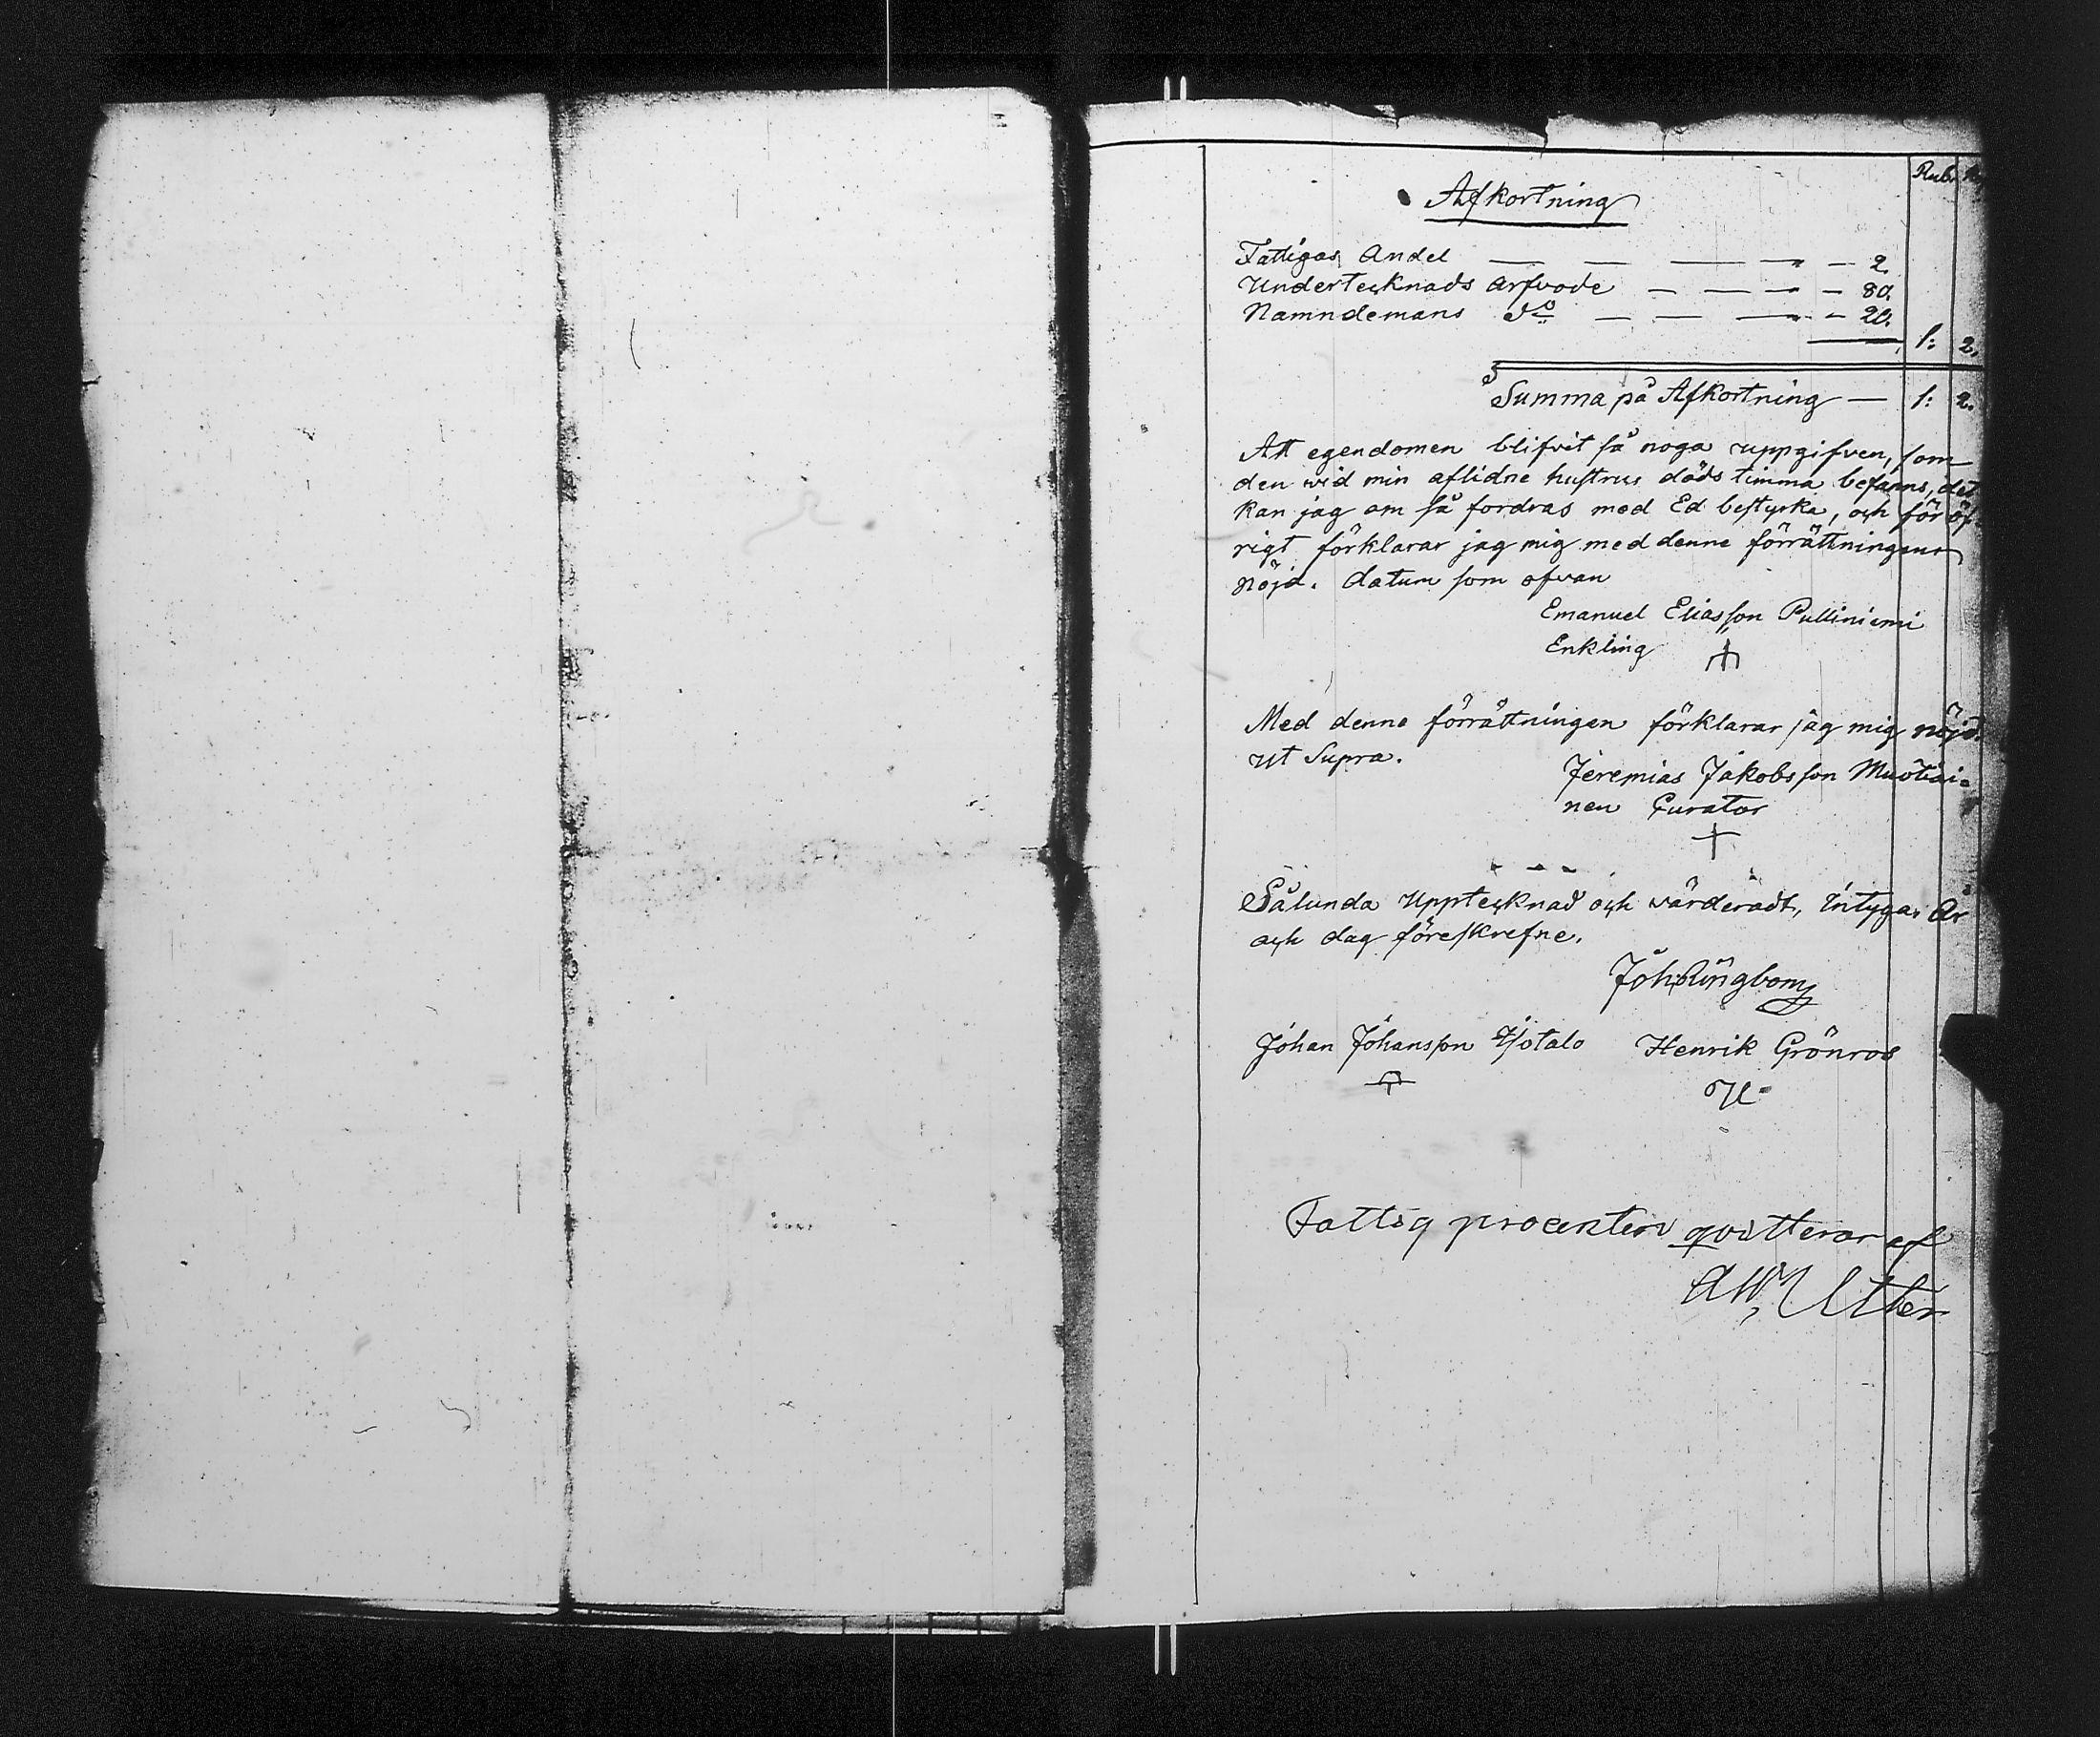 Rub. Kop
Afkortning
Fattigas Andel — — — — — 2.
Undertecknads arfvode — — — — 80.
Namndemans do — — — — 20.
1: 2.
Summa på Afkortning — 1: 2.
Att egendomen blifvit så noga uppgifven, som
den wid min aflidne hustrus döds timma befanns, det
kan jag om så fordras med Ed bestyrka, och för öf-
rigt förklarar jag mig med denne förrättningens
nöjd. datum som ofvan
Emanuel Eliasson Pulliniemi
Enkling
Med denne förrättningen förklarar jag mig nöjd.
ut Supra.
Jeremias Jakobsson Muotiai-
nen Curator
Sålunda Upptecknad och wärderadt, Intygar År
och dag föreskrefne.
Joh Ringbom
Johan Johansson Isotalo Henrik Grönros
Fattig procenten qvitterar af